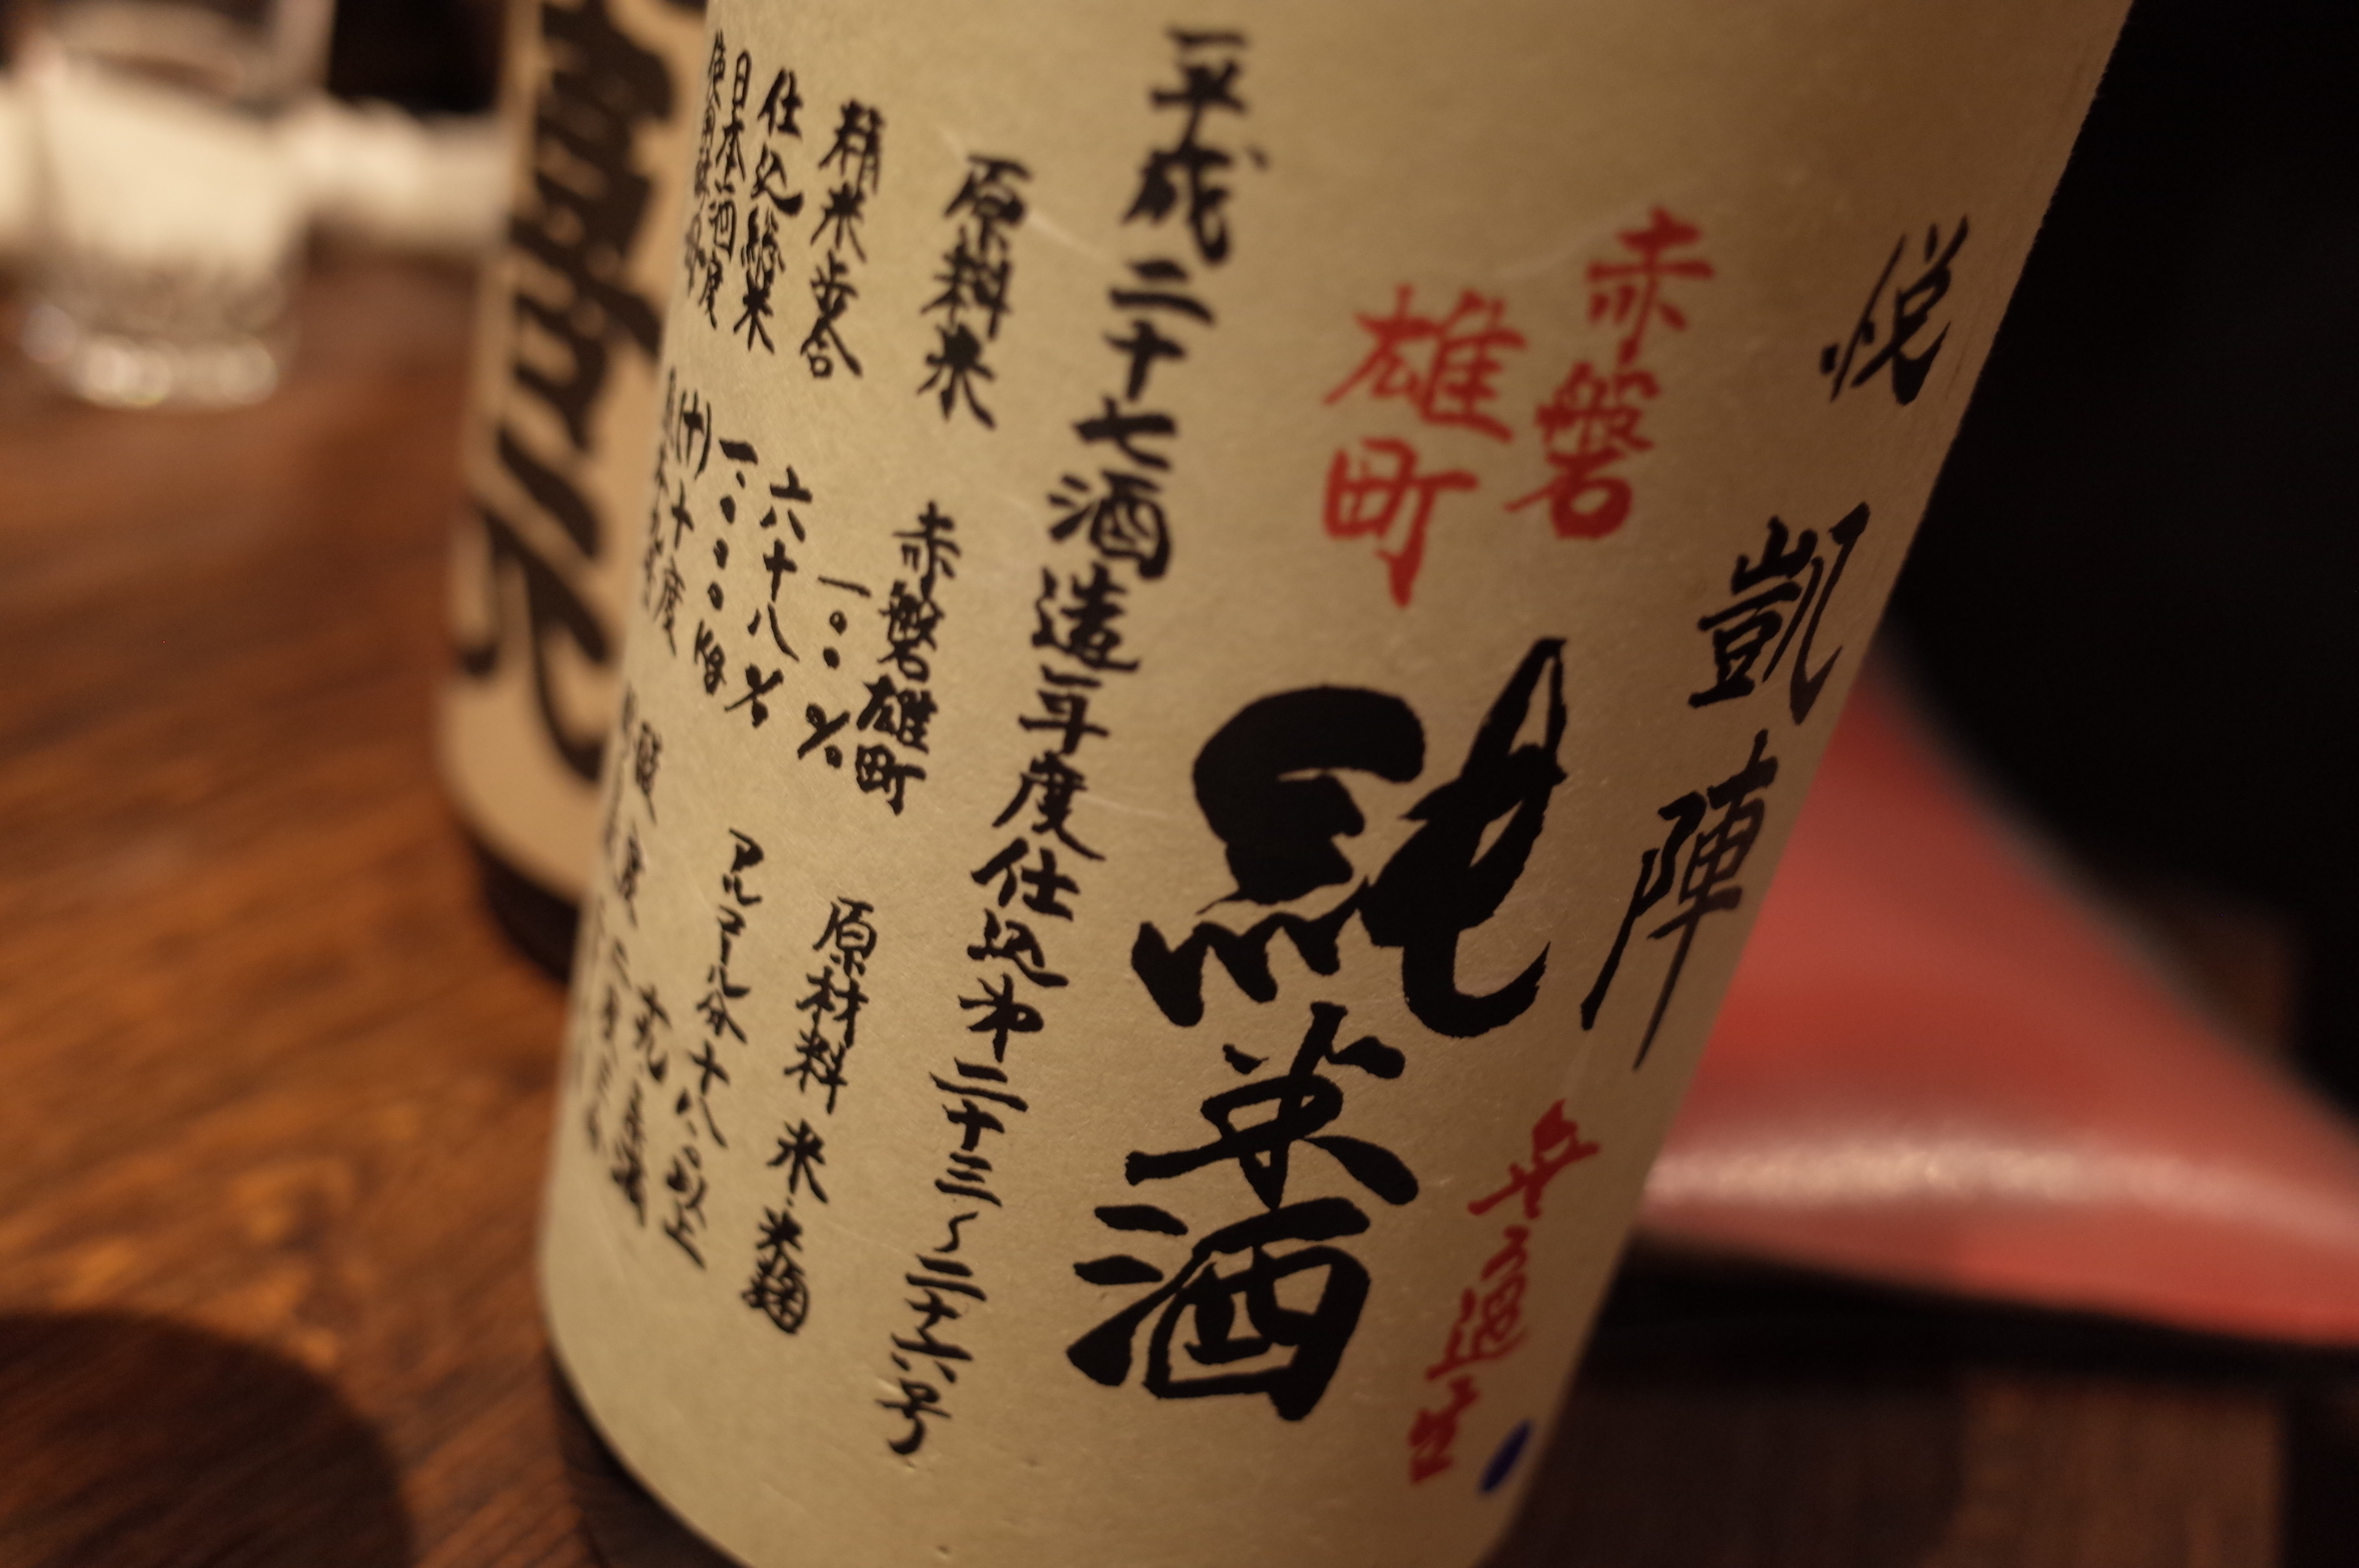 悦 凱陣
赤磐
雄町
純米酒
無ろ過生
平成二十七酒造年度仕込第二十三〜二十六号
原料米 赤磐雄町
一〇〇%
精米歩合 六十八% 原材料 米・米麹
仕込総米 一、〇〇〇kg アルコール分十八・〇以上
日本酒度 (十)十度